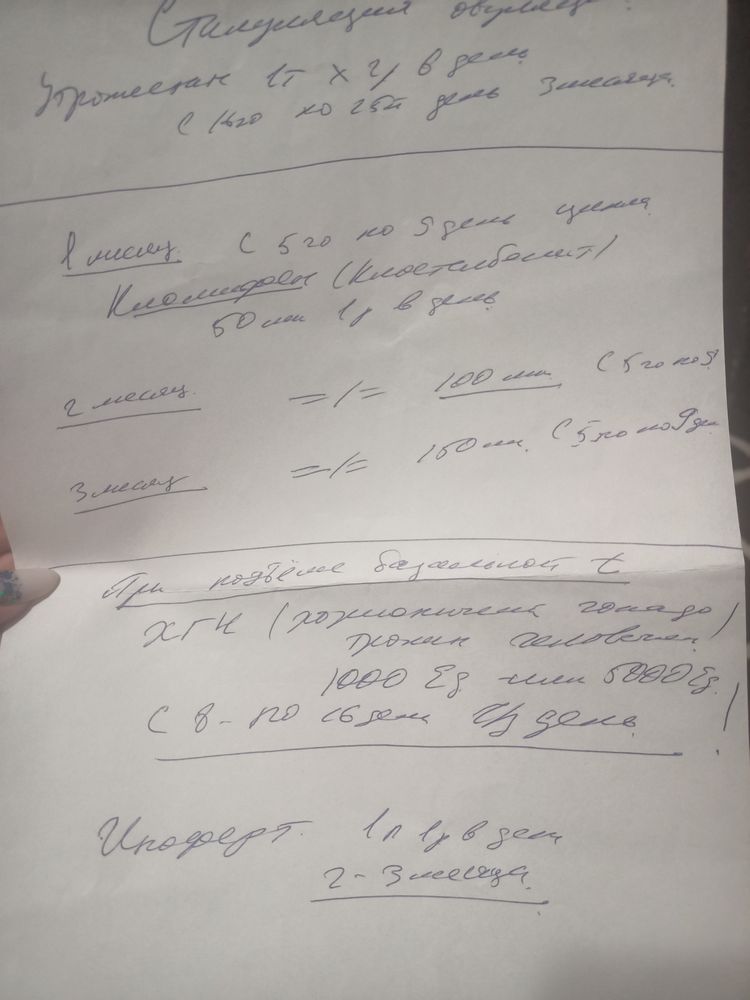 Стимуляция овуляции.
Утрожестан 1т х 2р в день
с 16го по 25й день 3 месяца.
1 месяц. с 5го по 9 день цикла
Кломифен (Клостилбегит)
50 мг 1р в день
2 месяц. =/= 100 мг. с 5го по 9
3 месяц =/= 150 мг. с 5го по 9 ден
При подъёме базальной t
ХГЧ (хорионичен гонадо
тропин человечес)
1000 Ед или 5000 Ед.
с 8 по 16 день ч/з день
Иноферт. 1п 1р в день
2-3 месяца.